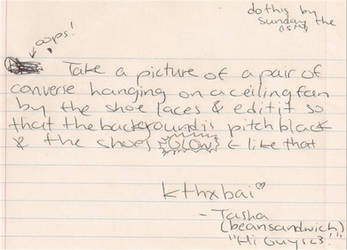 do this by
sunday the
oops!
Take a picture of a pair of
converse hanging on a ceiling fan
by the shoe laces & edit it so
that the background is pitch black
& the shoes GLOW ← like that
kthxbai♡
- Tasha
(beansandwich)
"Hi Guys<3!"